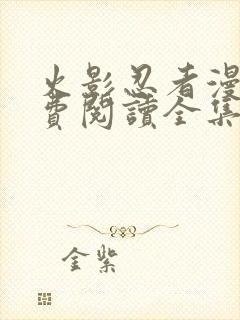 火影忍者漫
費閱讀全集
金紫